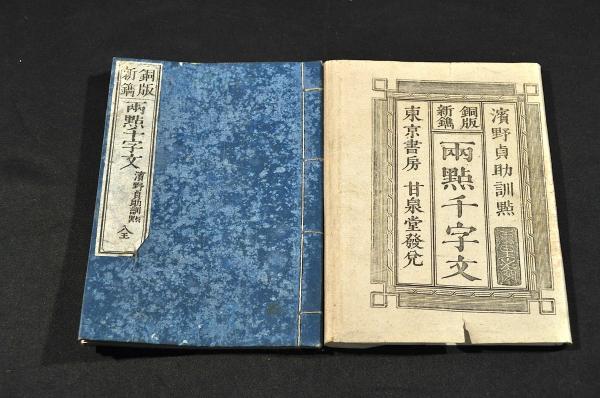 銅版
新鐫
兩點千字文
濱野貞助訓點
全
濱野貞助訓點
銅版
新鐫
兩點千字文
東京書房 甘泉堂發兌